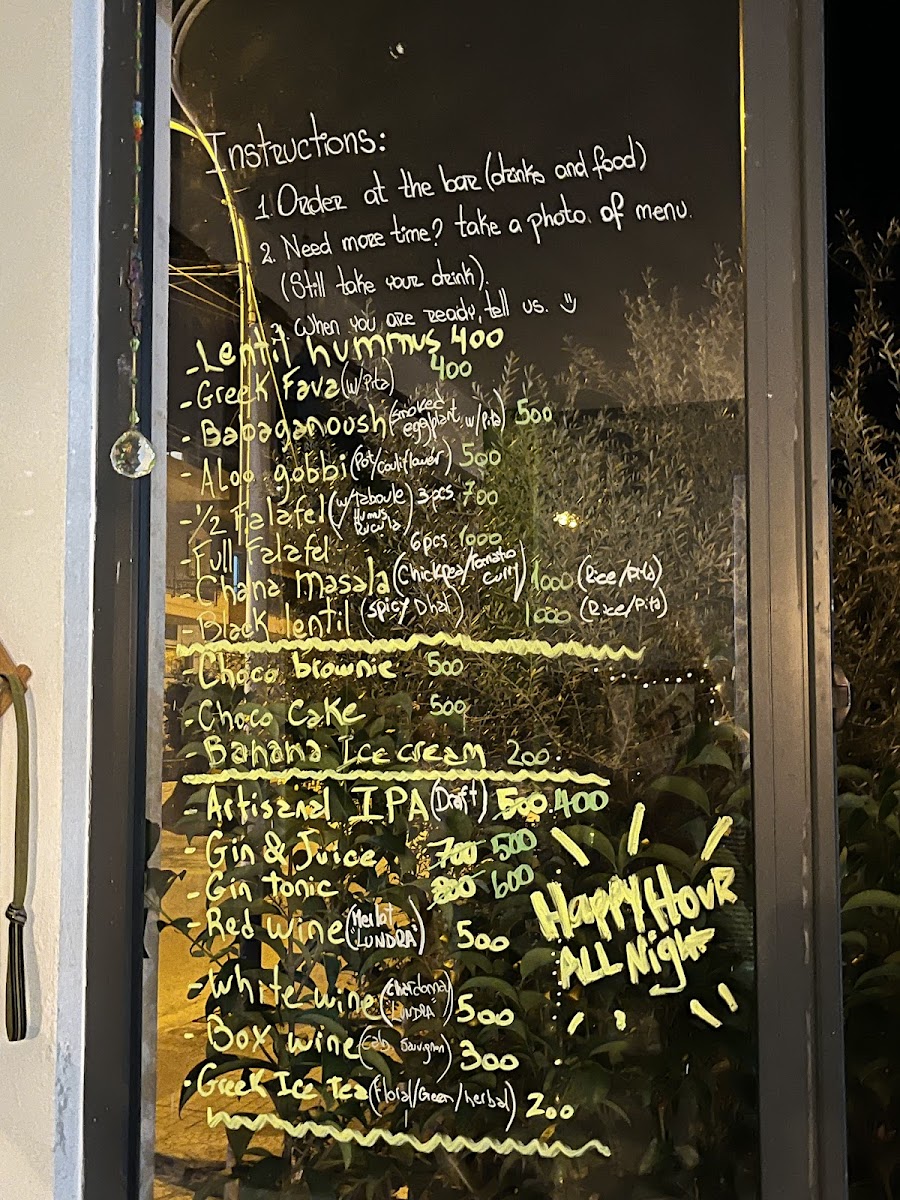 Instructions:
1. Order at the bar (drinks and food)
2. Need more time? take a photo. of menu.
(Still take your drink).
3. When you are ready, tell us. :)
- Lentil hummus 400
- Greek Fava (w/Pita) 400
- Babaganoush (smoked eggplant w/Pita) 500
- Aloo gobbi (Pot/couliflower) 500
- 1/2 Falafel (w/taboule Humus Rucula) 3 pcs 700
- Full Falafel 6 pcs 1000
- Chana masala (Chickpea/tomato curry) 1000 (Rice/Pita)
- Black lentil (spicy Dhal) 1000 (Rice/Pita)
- Choco brownie 500
- Choco Cake 500
- Banana Ice cream 200.
- Artisanal IPA (Draft) 500 400
- Gin & Juice 700 500
- Gin tonic 800 600
- Red wine (Merlot "LUNDRA") 500
- White wine (Chardonay "LUNDRA") 500
- Box wine (Cab. Sauvignon) 300
- Greek Ice tea (Floral/Green/herbal) 200
Happy Hour
ALL Night